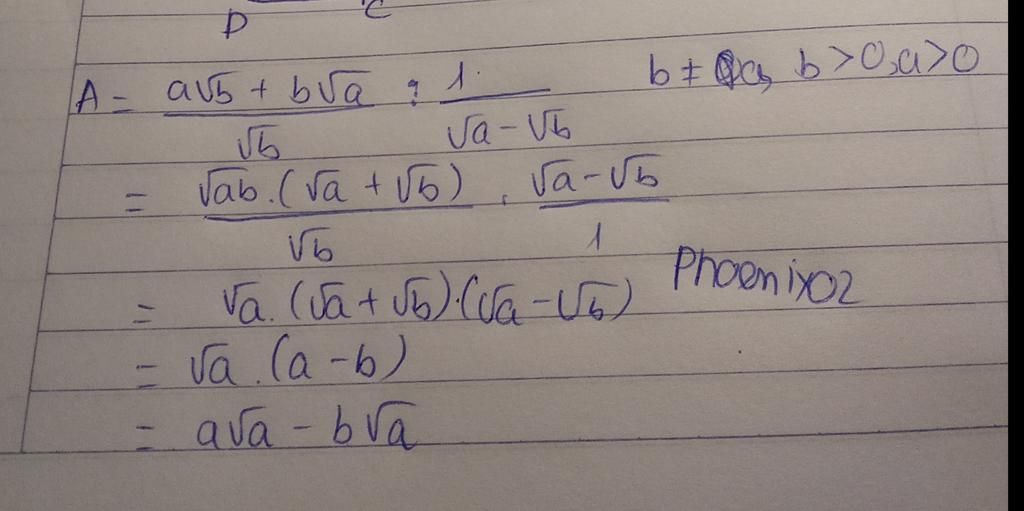 D C
A = (a√b + b√a)/√b : 1/(√a - √b) b ≠ a, b > 0, a > 0
= (√ab . (√a + √b))/√b . (√a - √b)/1
= √a . (√a + √b) . (√a - √b) Phoenix02
= √a . (a - b)
= a√a - b√a